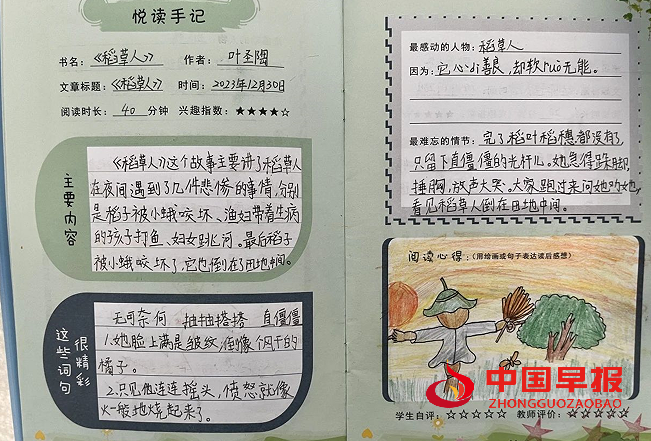 悦读手记
书名：《稻草人》 作者：叶圣陶
文章标题：《稻草人》 时间：2023年12月30日
阅读时长：40 分钟 兴趣指数：★★★★☆
主要内容
《稻草人》这个故事主要讲了稻草人
在夜间遇到了几件悲惨的事情,分别
是稻子被小蛾咬坏、渔妇带着生病
的孩子打鱼、妇女跳河。最后稻子
被小蛾咬坏了,它也倒在了田地中间。
很精彩
这些词句
无可奈何 抽抽搭搭 直僵僵
1.她脸上满是皱纹,倒像个风干的
橘子。
2.只见他连连摇头,愤怒就像
火一般地烧起来了。
最感动的人物：稻草人
因为：它心di善良,却软ruò无能。
最难忘的情节：完了稻叶稻穗都没有了,
只留下直僵僵的光杆儿。她急得跺脚,
捶胸,放声大哭。大家跑过来问她劝她,
看见稻草人倒在田地中间。
阅读心得：(用绘画或句子表达读后感想)
中国早报
ZHONGGUOZAOBAO
学生自评：☆☆☆☆☆ 教师评价：☆☆☆☆☆